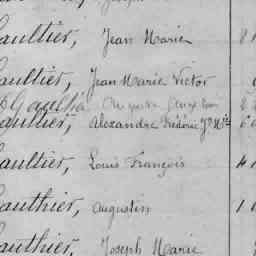 Gaultier, Jean Marie
Gaultier, Jean Marie Victor
Gaultier
Gaultier, Alexandre Frédéric Jn Mie
Gaultier, Louis François
Gauthier, Augustin
Gauthier, Joseph Marie